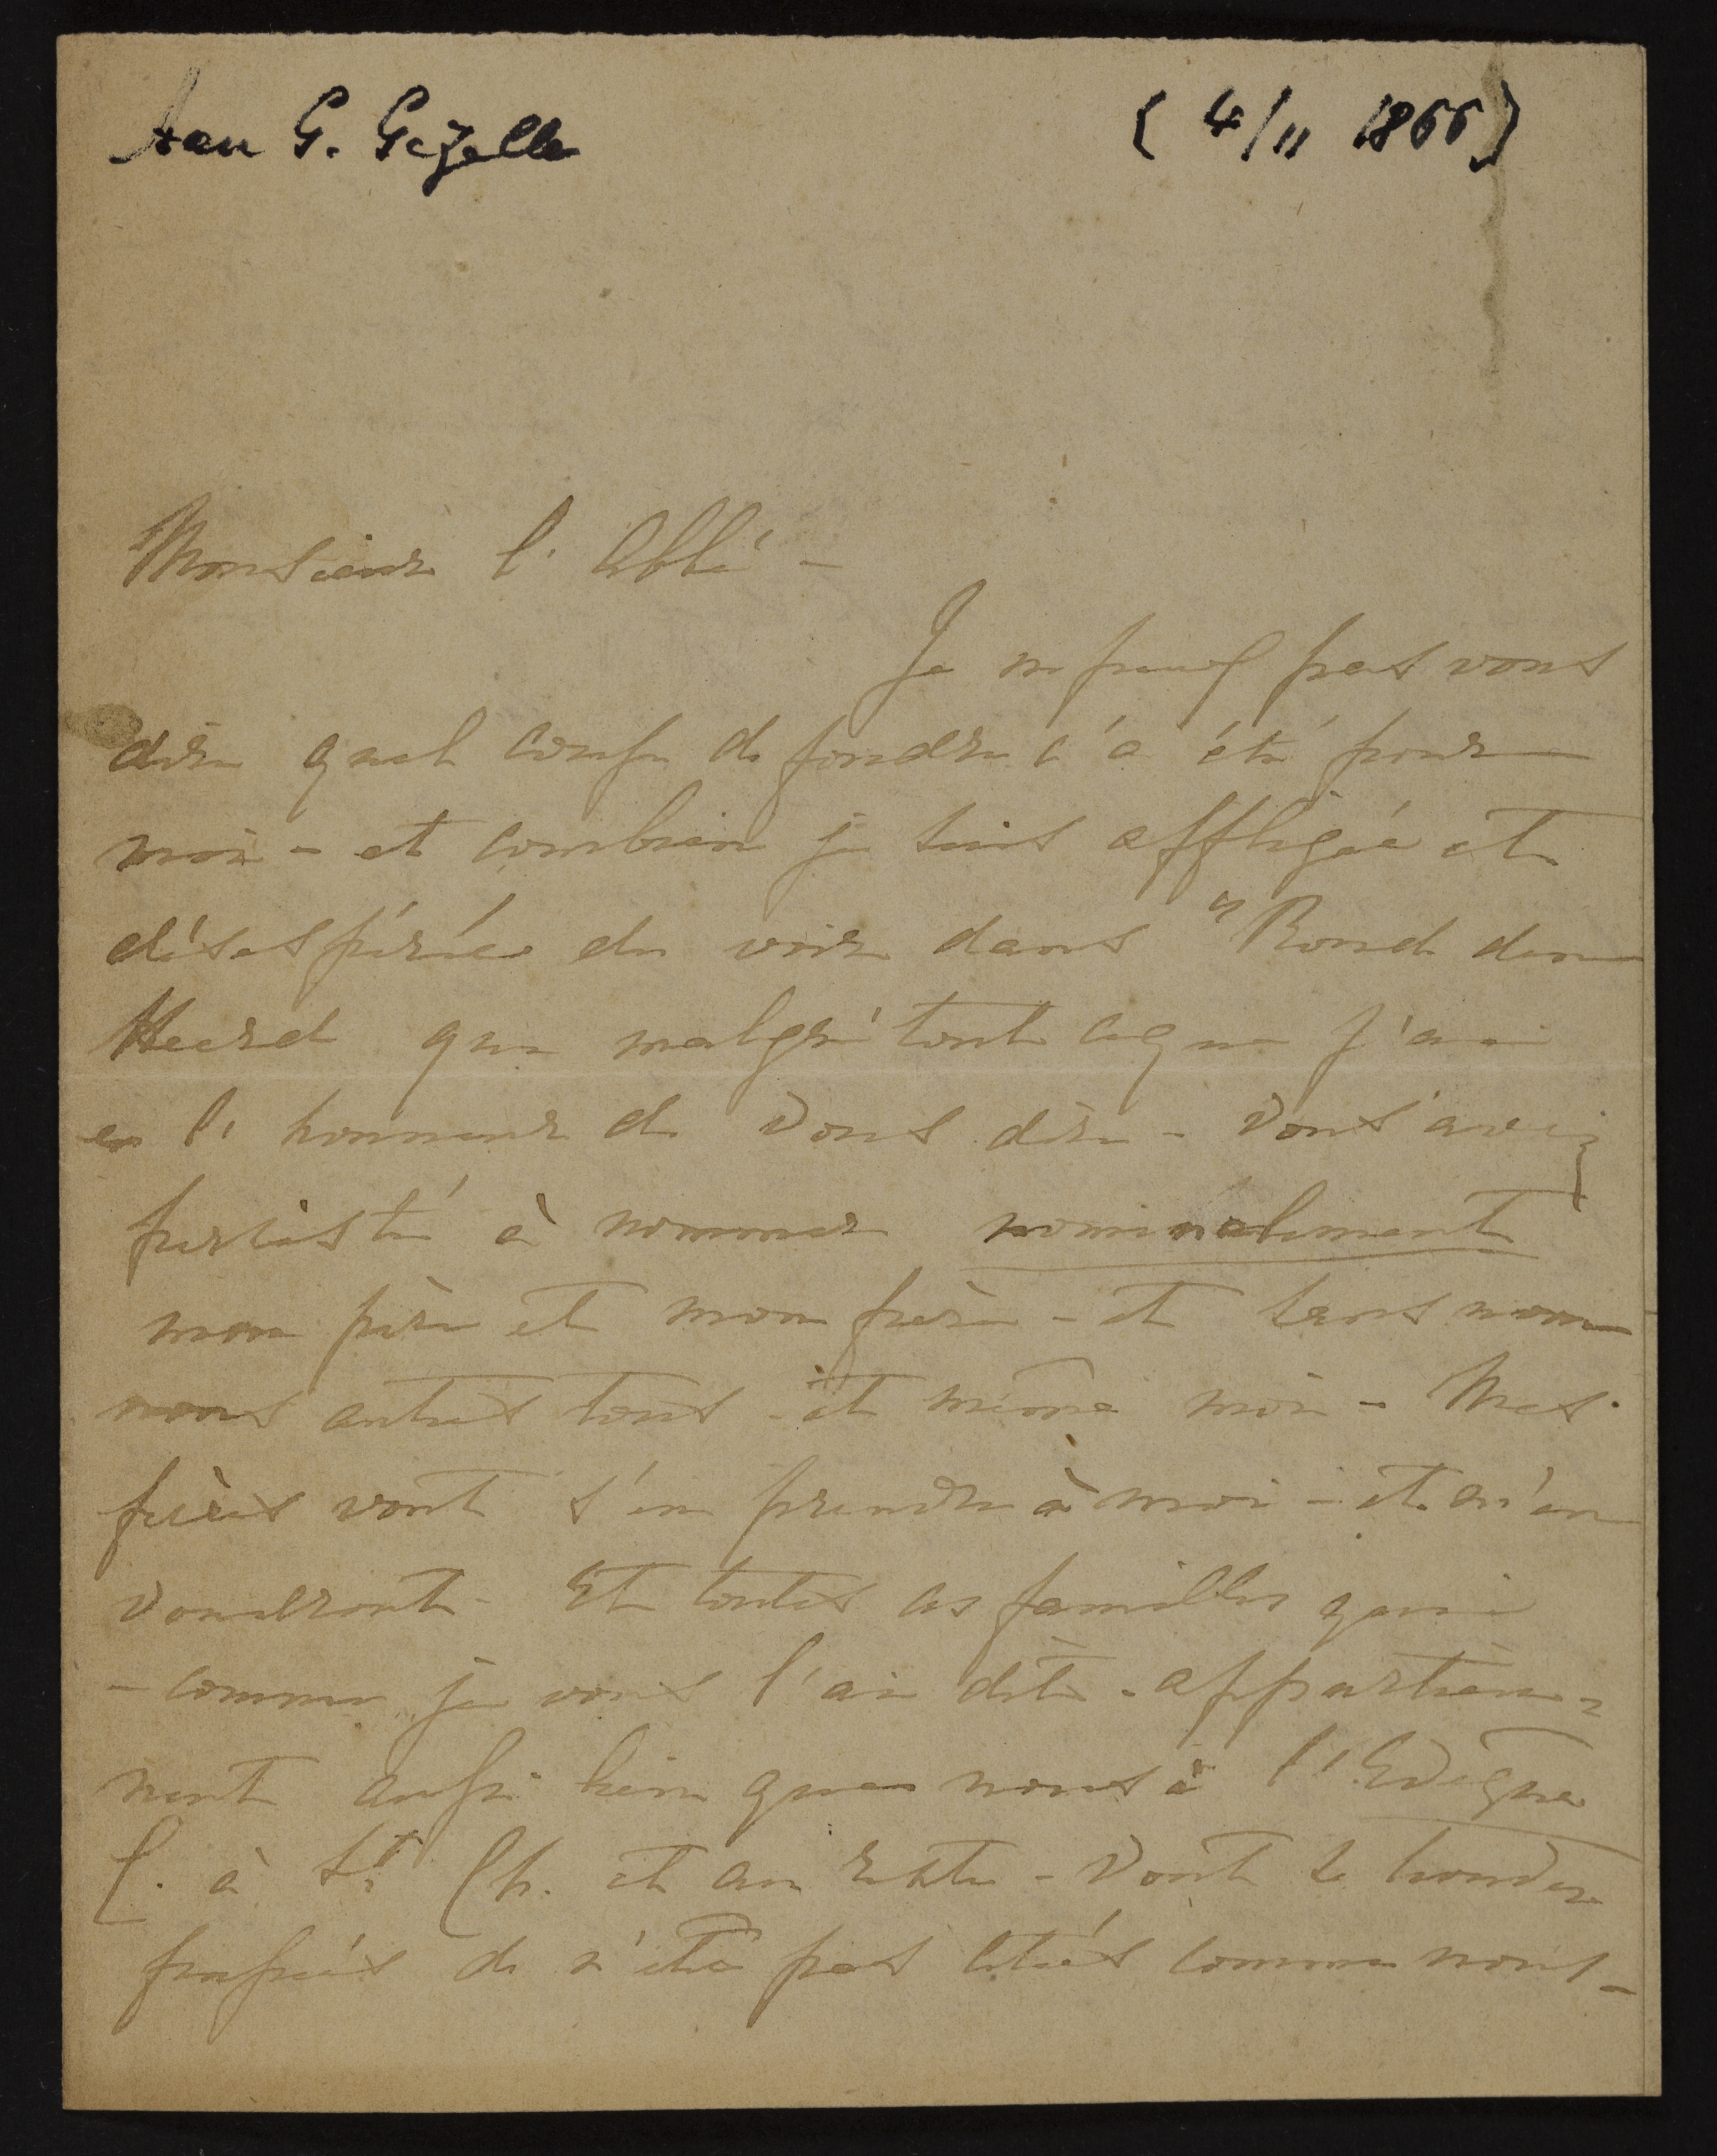 Aan G. Gezelle
(4/11 1866)
Monsieur l'Abbé -
Je ne peux pas vous
dire quel coup de foudre ç'a été pour
moi - et combien je suis affligée et
désespérée de voir dans "Rond den
Heerd que malgré tout ce que j'ai
eu l'honneur de Vous dire - Vous avez
persisté à nommer nominalement
mon père et mon frère - et sans nom-
nous autres tous - et même moi - Mes
frères vont s'en prendre à moi - et m'en
voudront - Et toutes ces familles qui
- comme je vous l'ai dit - appartien-
nent aussi bien que nous à l'Evêque
C. à St Ch. et au reste - Vont se trouver
de n'être pas cités comme nous -